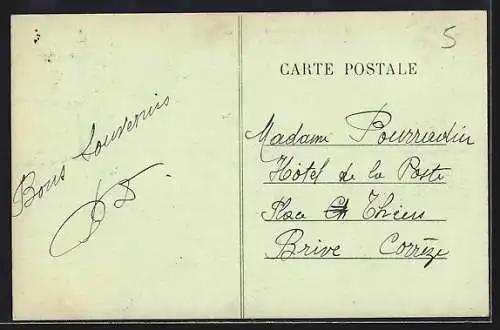 5
CARTE POSTALE
Bons Souvenirs
Madame
Hôtel de la Poste
Place Thiers
Brive Corrèze